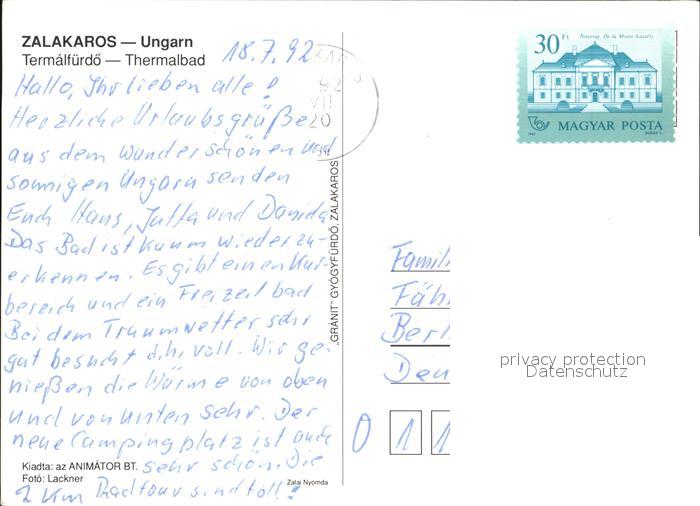 ZALAKAROS — Ungarn
Termálfürdő — Thermalbad
18.7.92
Hallo, Ihr lieben alle!
Herzliche Urlaubsgrüße
aus dem wunderschönen und
sonnigen Ungarn senden
Euch Hans, Jutta und Daniela.
Das Bad ist kaum wiederzu-
erkennen. Es gibt einen Kur-
bereich und ein Freizeitbad
Bei dem Traumwetter sehr
gut besucht d.h. voll. Wir ge-
nießen die Wärme von oben
und von unten sehr. Der
neue Campingplatz ist auch
sehr schön. Die
2 Km Radtour sind toll!
Kiadta: az ANIMÁTOR BT.
Fotó: Lackner
Zalai Nyomda
„GRÁNIT" GYÓGYFÜRDŐ, ZALAKAROS
92
VII
20
30 Ft
Noszvaj, De la Motte-kastély
MAGYAR POSTA
Famil
Fäh
Ber
Deu
0 1 1
privacy protection
Datenschutz